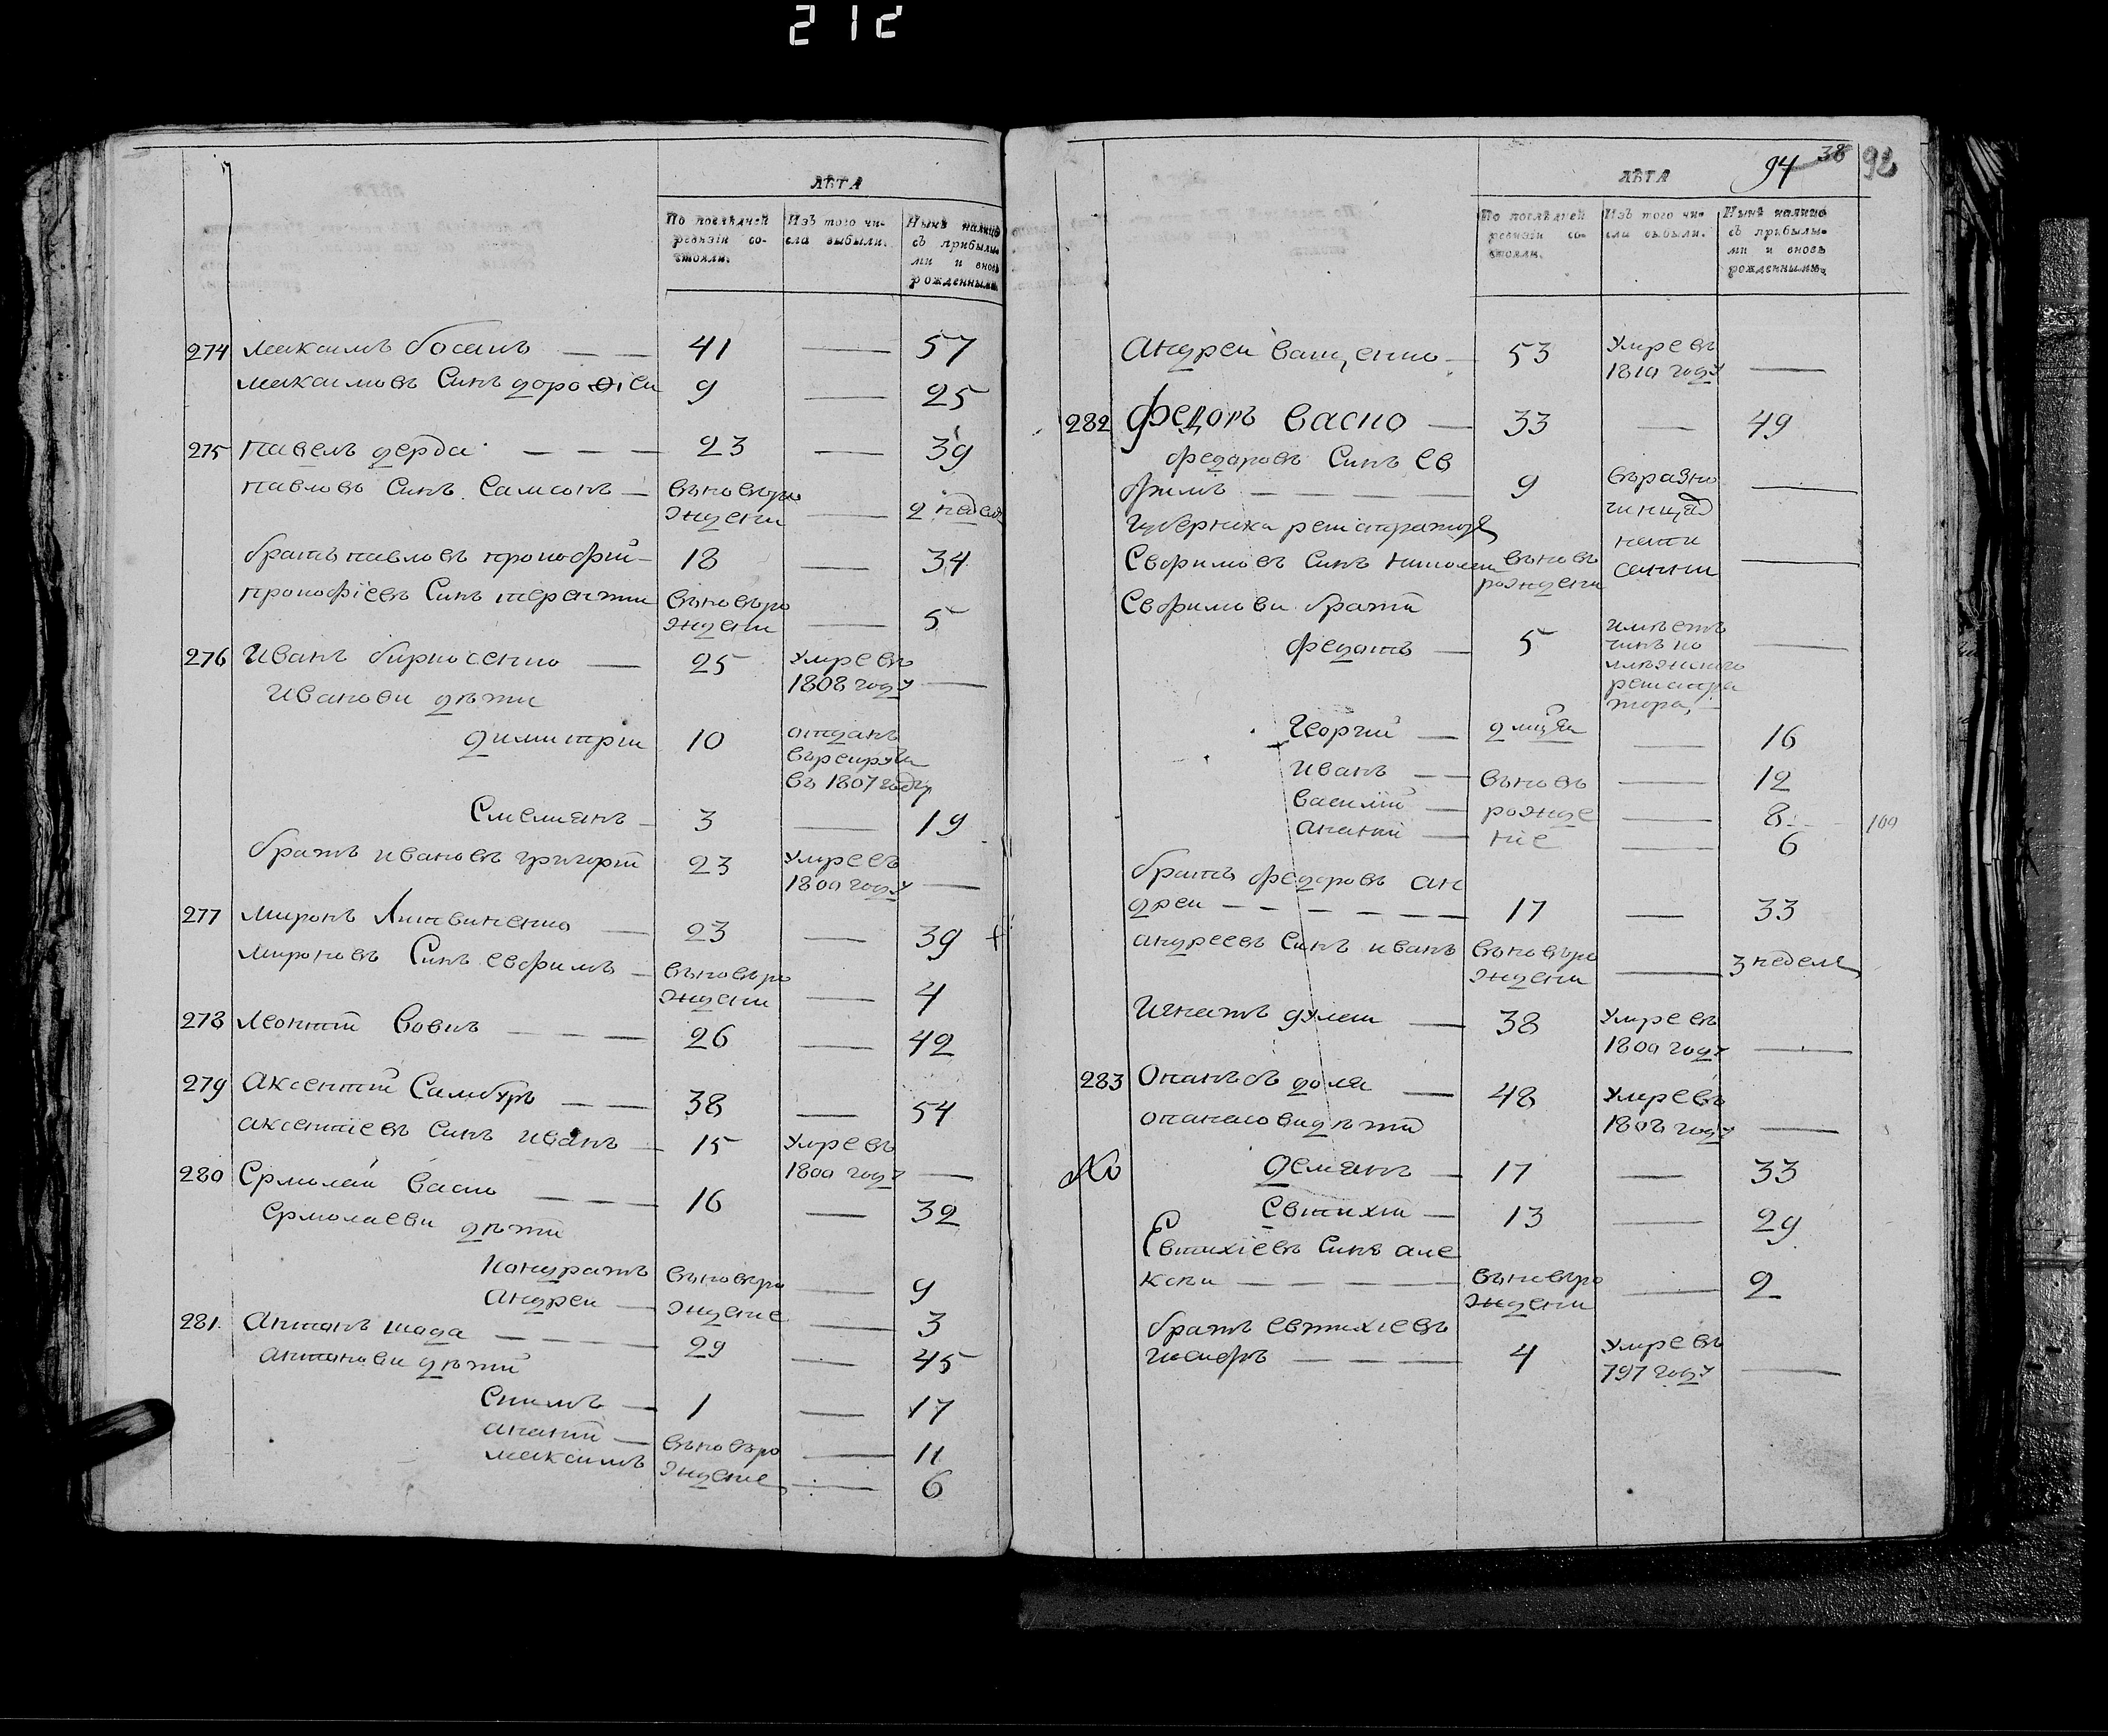 212
ЛѢТА
По послѣдней ревизіи состояли.
Изъ того числа выбыли.
Нынѣ налицо съ прибылыми и вновь рожденными.
274 максимъ босанъ — — 41 — 57
максимовъ Синъ дорофіи 9 — 25
275 павелъ дерда — — — 23 — 39
павловъ Синъ Самсонъ — вьновъро
ждени — 2 недел
братъ павловъ прокофий — 18 — 34
прокофіевъ Синъ терентии вьновъро
ждени — 5
276 Иванъ бирносенко — 25 Умре въ
1808 году —
Иванови дѣти
димитрии 10 отданъ
върекрути
въ 1807 году
Емелиянъ — 3 — 19
братъ ивановъ григорий 23 Умре въ
1809 году —
277 миронъ Литвиненко — 23 — 39 +
мироновъ Синъ евфимъ — вьновъро
ждени — 4
278 Леонтий Вовкъ — — — 26 — 42
279 аксентий Самбуръ — — 38 — 54
аксентиевъ Синъ иванъ — 15 Умре въ
1809 году —
280 Ермолай Васко — — — 16 — 32
Ермолаеви дѣти
Кондратъ вьновъро — 9
андреи — ждение — 3
281. антонъ шада — — — 29 — 45
антонови дѣти
Екимъ — 1 — 17
ананий — вьновъро — 11
максимъ ждение — 6
94 38 92
ЛѢТА
По послѣдней ревизіи состояли.
Изъ того числа выбыли.
Нынѣ налицо съ прибылыми и вновь рожденными.
андреи ващенко — 53 Умре въ
1810 году —
282 Федоръ Васко — 33 — 49
федоровъ Синъ Ев
фимъ — — — — 9 въразно —
Губернски регистраторъ чинцад
Евфимовъ Синъ николаи вьновъ
рождени
Евфимови братя
федотъ — 5 имѣетъ
чинъ ко
лѣжского
регистра
тора, —
Георгий — 2 мцѧ — 16
иванъ — вьновъ — 12
василий — рожде — 8
ананий — ние — 6
109
братъ федоровъ ан
дреи — — — — — — 17 — 33
андреевъ Синъ иванъ вьновъро
ждени — 3 недели
Игнатъ дулеи — 38 Умре въ
1809 году —
283 Опанасъ доля — 48 Умре въ
опанасови дѣти 1808 году —
Демянъ — 17 — 33
Евтихий — 13 — 29
Евтихіевъ Синъ але
кси — — — — — вьновъро
ждени — 2
братъ евтихіевъ
иосифъ — — — 4 Умре въ
797 году —